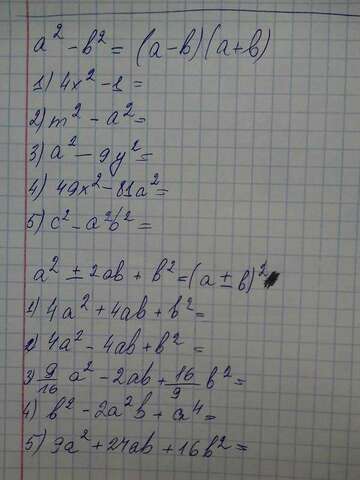 a² - b² = (a-b)(a+b)
1) 4x² - 1 =
2) m² - a² =
3) a² - 9y² =
4) 49x² - 81a² =
5) c² - a²b² =
a² ± 2ab + b² = (a ± b)²
1) 4a² + 4ab + b² =
2) 4a² - 4ab + b² =
3) 9/16 a² - 2ab + 16/9 b² =
4) b² - 2a²b + a⁴ =
5) 9a² + 24ab + 16b² =